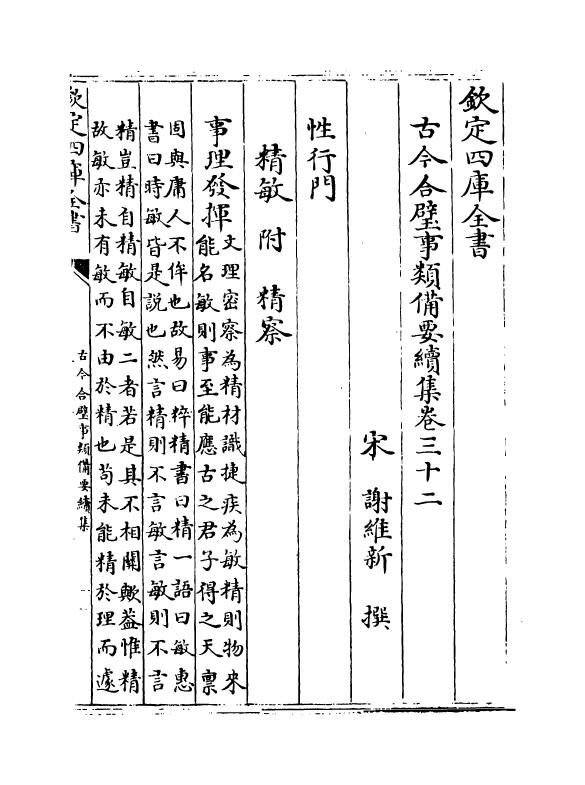 欽定四庫全書
古今合璧事類備要續集卷三十二
宋 謝維新 撰
性行門
精敏 附 精察
事理發揮
文理密察為精材識捷疾為敏精則物來
能名敏則事至能應古之君子得之天稟
固與庸人不侔也故易曰粹精書曰精一語曰敏惠
書曰時敏皆是說也然言精則不言敏言敏則不言
精豈精自精敏自敏二者若是其不相關歟蓋惟精
故敏亦未有敏而不由於精也茍未能精於理而遽
欽定四庫全書
古今合璧事類備要續集